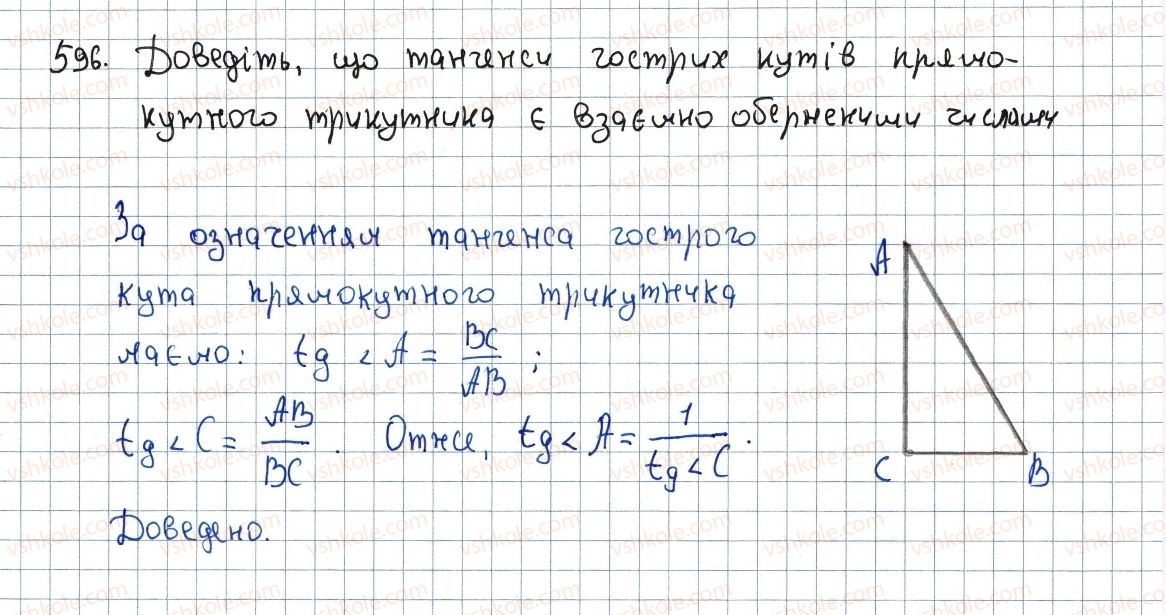 596. Доведіть, що тангенси гострих кутів прямо-
кутного трикутника є взаємно оберненими числами
За означенням тангенса гострого
кута прямокутного трикутника
маємо: tg < A = BC/AB ;
tg < C = AB/BC . Отже, tg < A = 1/tg < C .
Доведено.
A
C B